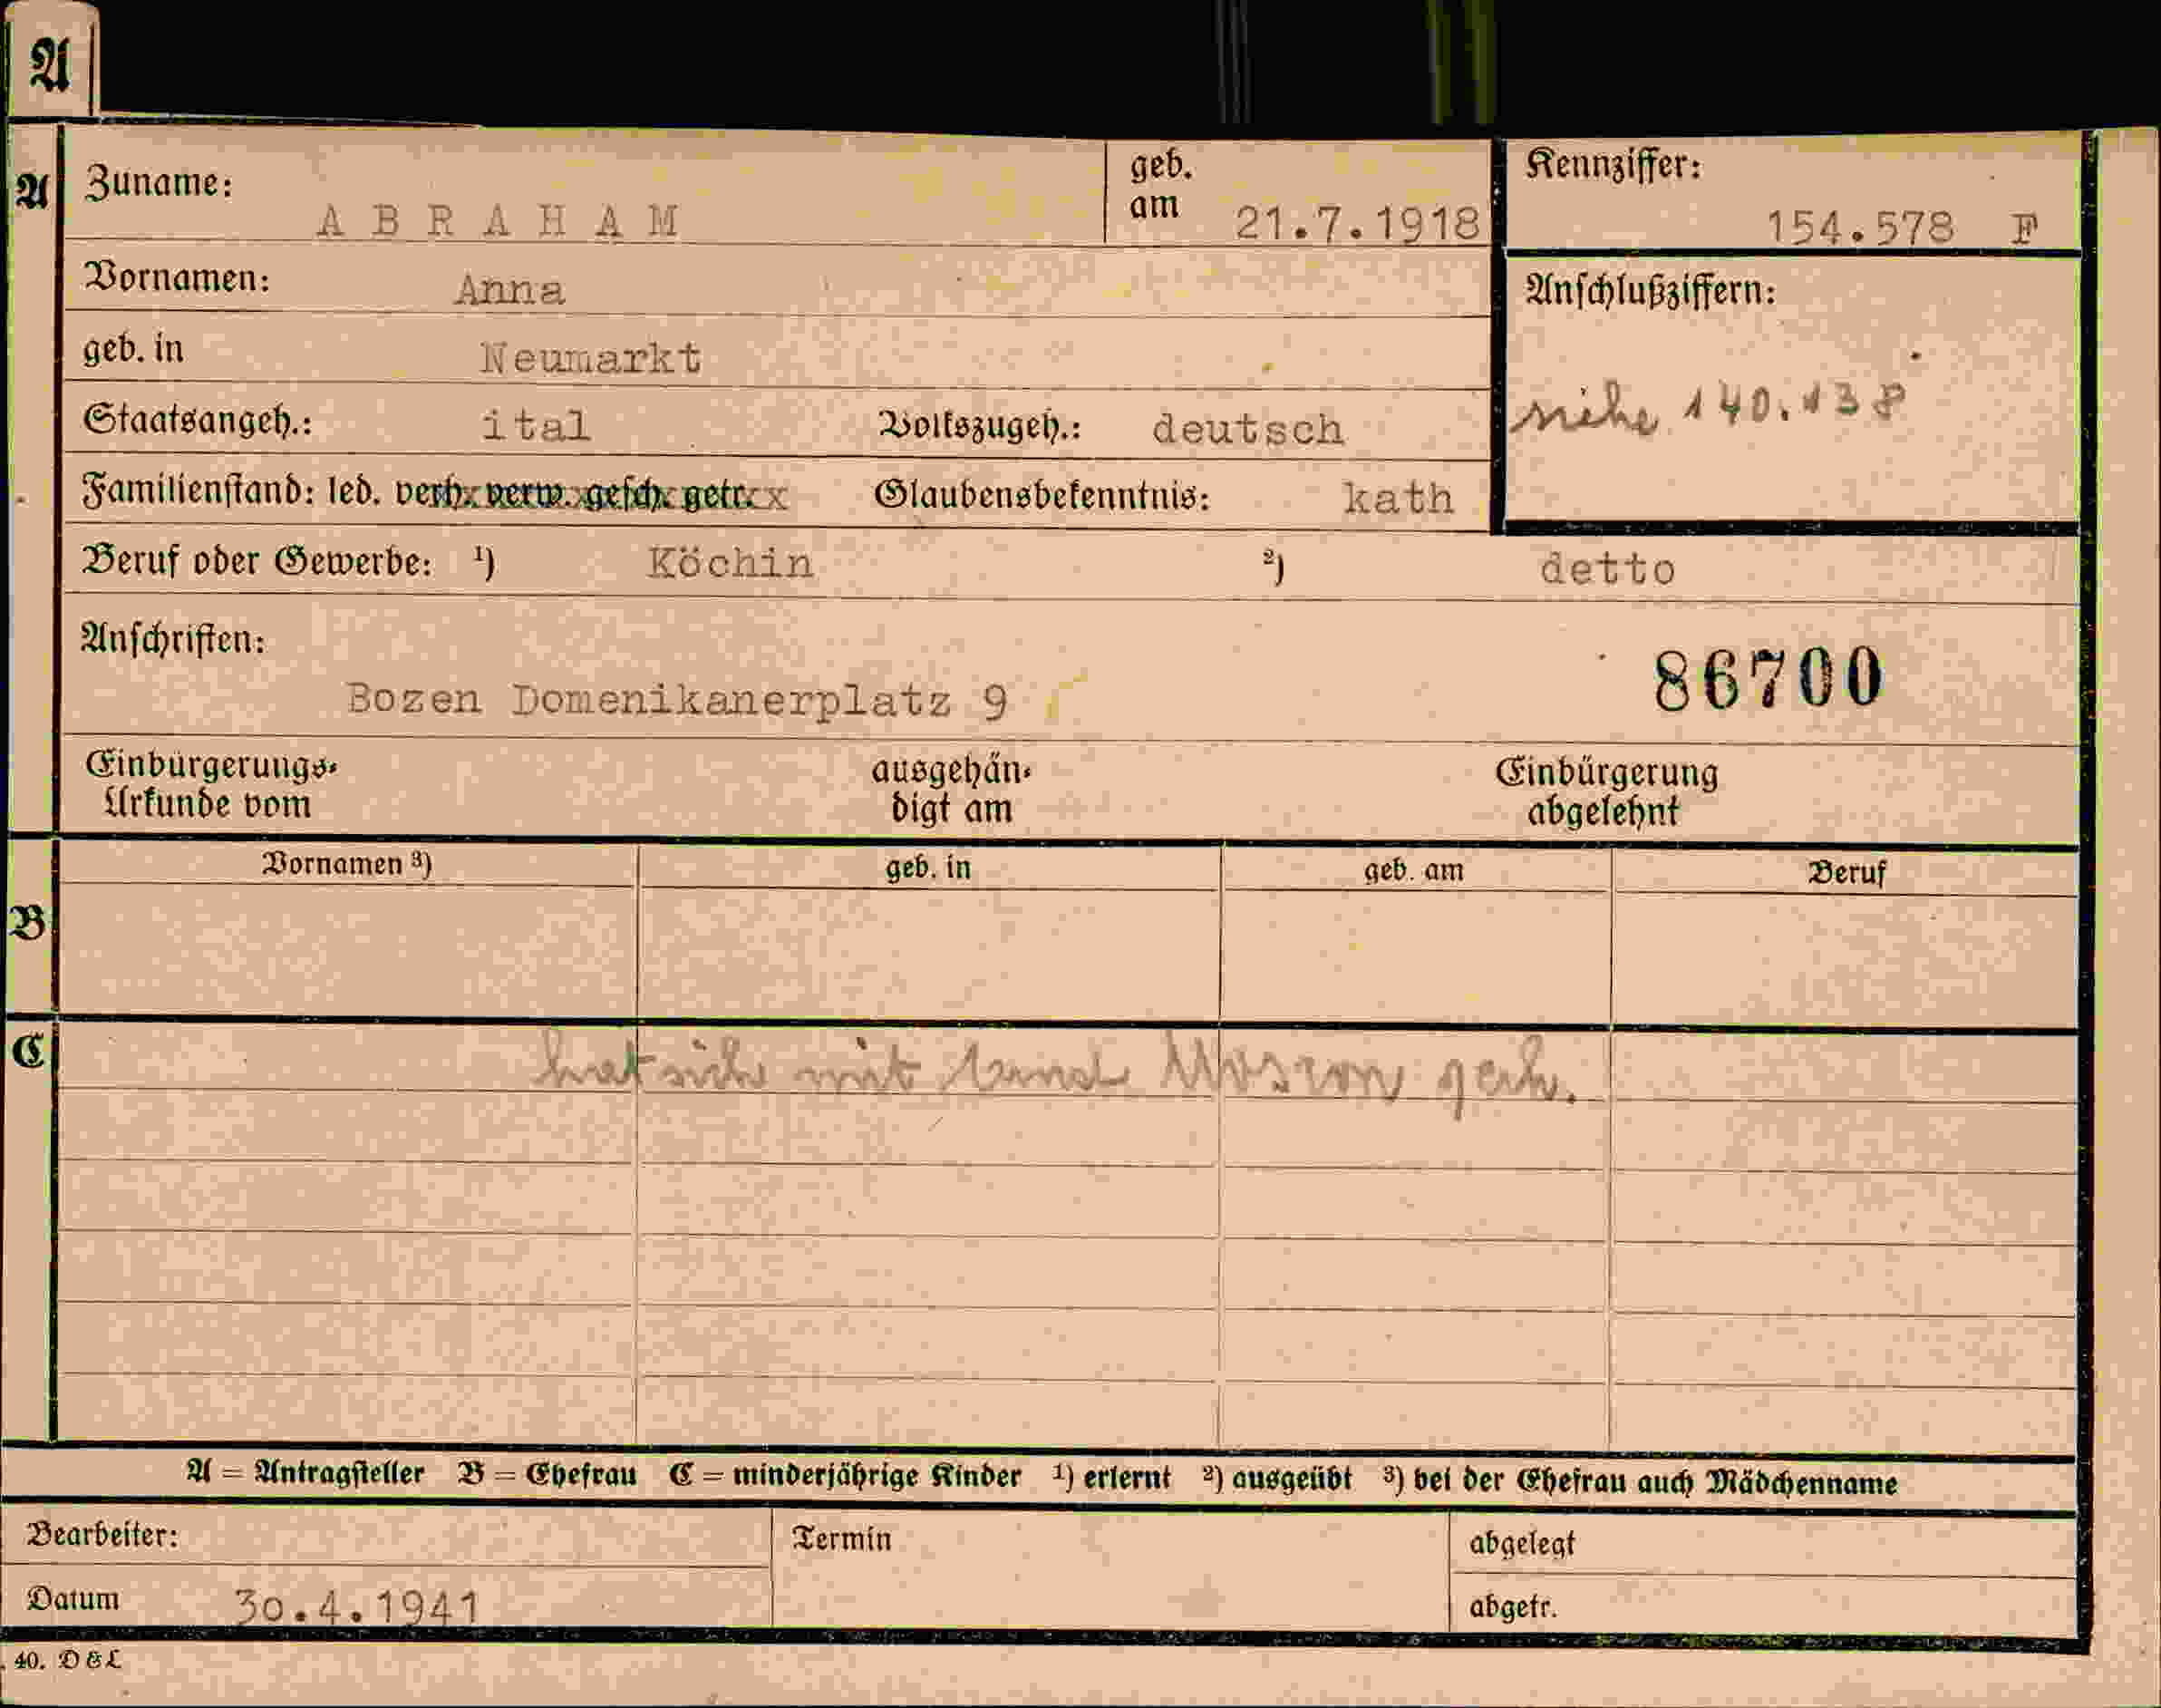 A
A
Zuname: ABRAHAM geb. am 21.7.1918 Kennziffer: 154.578 F
Vornamen: Anna Anschlußziffern:
geb. in Neumarkt
siehe 140.138
Staatsangeh.: ital Volkszugeh.: deutsch
Familienstand: led. verh. verw. gesch. getr. Glaubensbekenntnis: kath
Beruf oder Gewerbe: ¹) Köchin ²) detto
Anschriften:
86700
Bozen Domenikanerplatz 9
Einbürgerungs- ausgehän- Einbürgerung
Urkunde vom digt am abgelehnt
Vornamen ³) geb. in geb. am Beruf
B
C
hat sich mit
A = Antragsteller B = Ehefrau C = minderjährige Kinder ¹) erlernt ²) ausgeübt ³) bei der Ehefrau auch Mädchenname
Bearbeiter: Termin abgelegt
Datum 30.4.1941 abgefr.
40. D & L